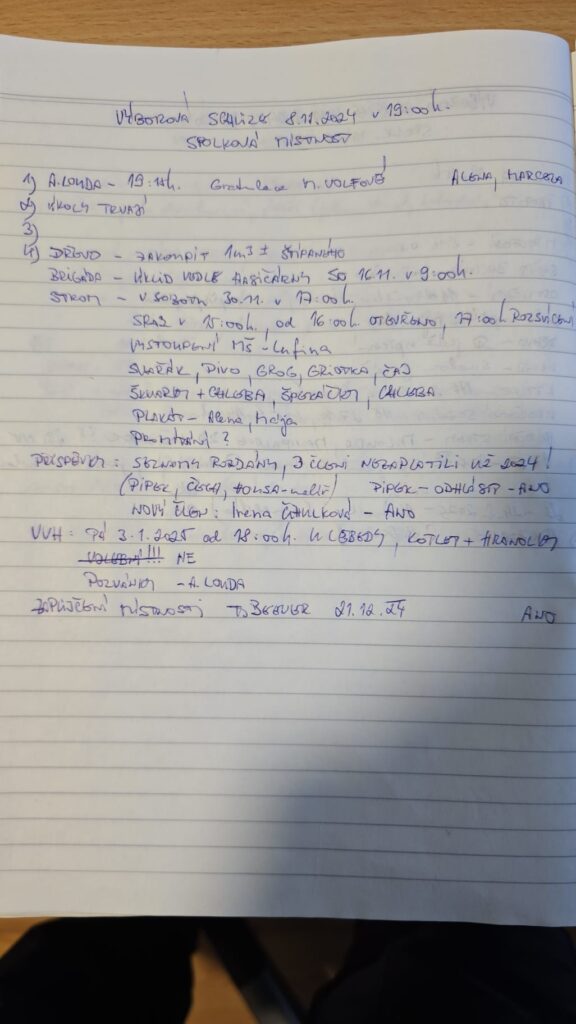 VÝBOROVÁ SCHŮZE 8.11.2024 v 19:00h.
SPOLKOVÁ MÍSTNOST
1) A. LOUDA - 19:11h. Gratulace M. VOLFOVÉ! ALENA, MARCELA
2) ÚKOLY TRVAJÍ
3)
4) DŘEVO - ZAKOUPIT 1m3 ± ŠTÍPANÉHO
BRIGÁDA - ÚKLID VODLE HASIČÁRNY SO 16.11. v 9:00h.
STROM - V SOBOTU 30.11. v 17:00h.
SRAZ v 15:00h., od 16:00h. OTEVŘENO, 17:00h ROZSVÍCENÍ
VYSTOUPENÍ MŠ -
SVAŘÁK, PIVO, GROG, GRIOTKA, ČAJ
ŠKVARKY + CHLEBA, ŠPEKÁČKY, CHLEBA
PLAKÁT - Alena, Mája
PROMÍTÁNÍ?
PŘÍSPĚVKY: SEZNAMY ROZDÁNY, 3 ČLENI NEZAPLATILI UŽ 2024!
(PIPEK, ČEGA, ) PIPEK - ODHLÁSIT - ANO
NOVÝ ČLEN: Irena - ANO
VVH: PÁ 3.1.2025 od 18:00h. U LEBEDY, KOTLET + HRANOLKY
VOLEBNÍ!!! NE
POZVÁNKY - A. LOUDA
ZAPŮJČENÍ MÍSTNOSTI 21.12.24 ANO